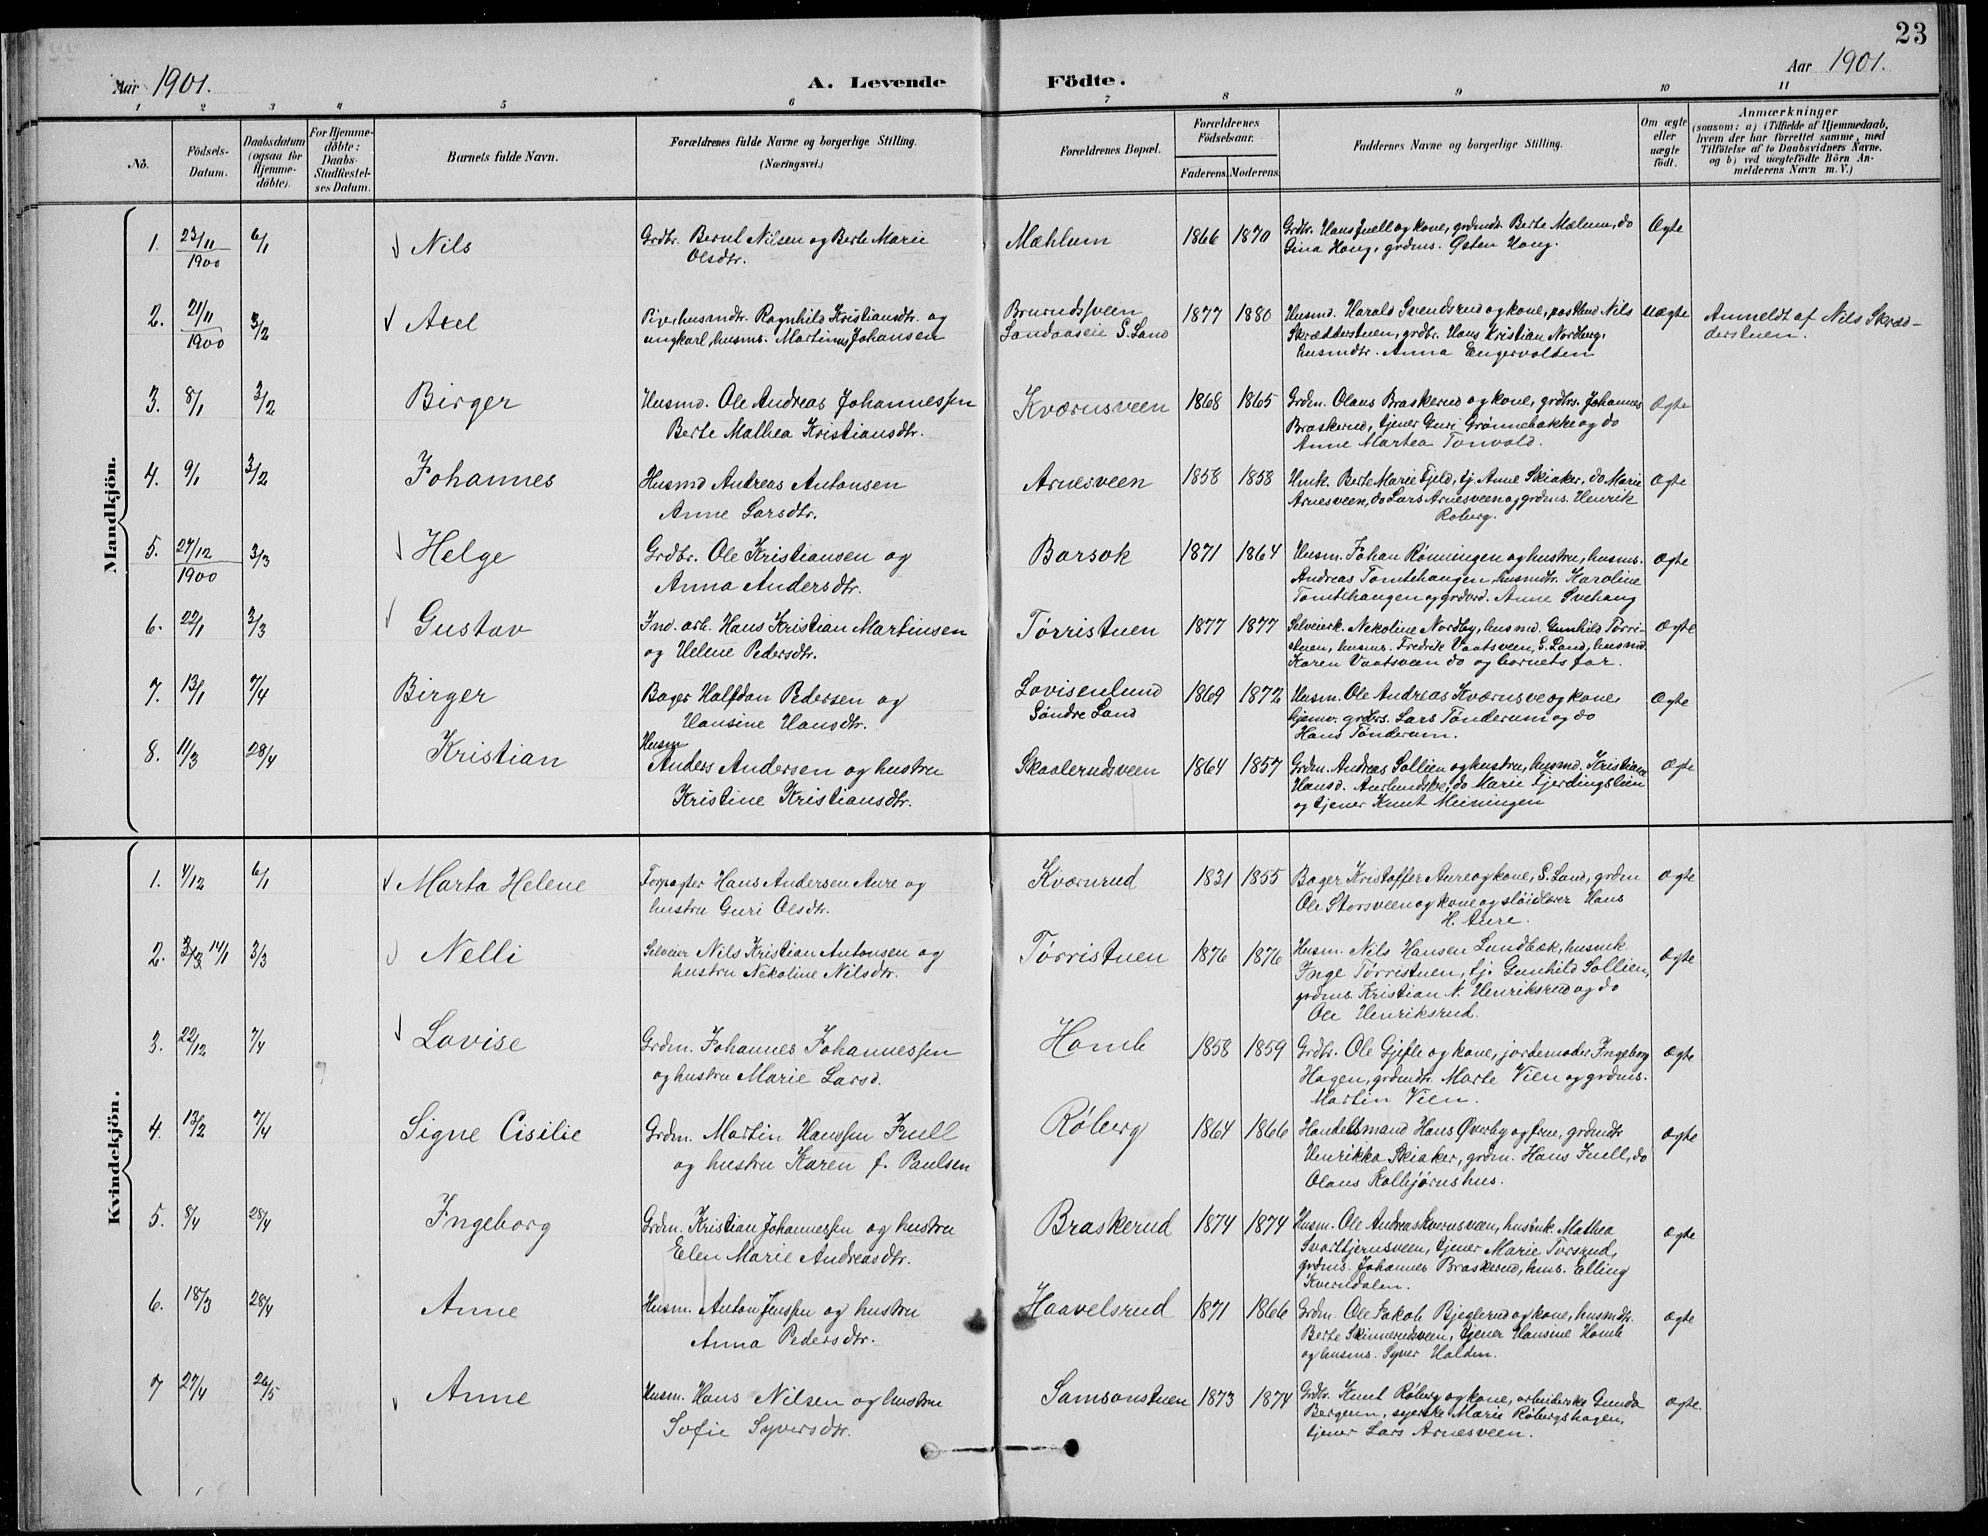 23
Aar 1901.
A. Levende Födte.
Aar 1901.
1 2 3 4 5 6 7 8 9 10 11
No.
Födsels-Datum.
Daabsdatum (ogsaa for Hjemme-döbte).
For Hjemme-döbte: Daabs-Stadfæstel-ses Datum.
Barnets fulde Navn.
Forældrenes fulde Navne og borgerlige Stilling. (Næringsvei.)
Forældrenes Bopæl.
Forældrenes Födselsaar. Faderens. Moderens.
Faddernes Navne og borgerlige Stilling.
Om ægte eller uægte födt.
Anmærkninger (saasom: a) i Tilfælde af Hjemmedaab, hvem der har forrettet samme, med Tilföielse af to Daabsvidners Navne, og b) ved uægtefödte Börn An-melderens Navn m. V.)
Mandkjön.
1. 23/11 1900 6/1 Nils
Grdbr. Bernt Nilsen og Berte Marie
Olsdtr.
Mæhlum 1866 1870
Grdbr. Hans Juell og kone, grdmdtr. Berte Mælum, do
Gina Haug, grdms. Østen Haug.
Ægte
2. 21/11 1900 3/2 Axel
Pige, husmdtr. Ragnhild Kristiansdtr. og
ungkarl, husms. Martinus Johansen
Brurudsveen
Landaasen S. Land 1877 1880
Husmd. Harald Svendsrud og kone, postbud Nils
Skrædderstuen, grdbr. Hans Kristian Nordberg,
husmdtr. Anna Engervolden
Uægte
Anmeldt af Nils Skræd-
derstuen.
3. 8/1 3/2 Birger
Husmd. Ole Andreas Johannessen
Berte Mathea Kristiansdtr.
Kværnsveen 1868 1865
Grdm. Olaus Braskerud og kone, grdbrs. Johannes
Braskerud, tjener Guri Grønnebakke og do
Anne Martea Tonvold.
Ægte
4. 9/1 3/2 Johannes
Husmd Andreas Antonsen
Anne Larsdtr.
Arnesveen 1858 1858
Hmk. Berte Marie Fjeld, tj. Anne Skiaker, do Marie
Arnesveen, do Lars Arnesveen og grdms. Henrik
Roberg.
Ægte
5. 27/12 1900 3/3 Helge
Grdbr. Ole Kristiansen og
Anna Andersdtr.
Barsok 1871 1864
Husm. Johan Rønningen og hustru, husms.
Andreas Tomtehaugen, husmdtr. Karoline
Tomtehaugen og grdbrd. Anne Svehaug
Ægte
6. 22/1 3/3 Gustav
Ind. arb. Hans Kristian Martinsen
og Helene Pedersdtr.
Tørristuen 1877 1877
Selveierk. Nekoline Nordby, husmd. Gunhild Tørri-
stuen, husms. Fredrik Vaatsveen, S. Land, husmd.
Karen Vaatsveen do og barnets far.
Ægte
7. 13/1 7/4 Birger
Bager Halfdan Pedersen og
Hansine Hansdtr.
Lovisenlund
Søndre Land 1869 1872
Husm. Ole Andreas Kværnsve og kone,
grdbrs. Lars Tønderum og do
Hans Tønderum.
Ægte
8. 11/3 28/4 Kristian
Husm
Anders Andersen og hustru
Kristine Kristiansdtr.
Skaalerudsveen 1864 1857
Grdm. Andreas Sollien og hustru, husmd. Kristiane
Hansd. Aurlundske, do Marie Fjerdingslien
og tjener Knut Meiningen
Ægte
Kvindekjön.
1. 4/12 6/1 Marta Helene
Forpagter Hans Andersen Aure og
hustru Guri Olsdtr.
Kværnrud 1831 1855
Bager Kristoffer Aure og kone, S. Land, grdm
Ole Storsveen og kone og sløidlærer Hans
H. Aure.
Ægte
2. 14/1 3/3 Nelli
Selveier Nils Kristian Antonsen og
hustru Nekoline Nilsdtr.
Tørristuen 1876 1876
Husm. Nils Hansen Lundbæk, husmk.
Inge Tørristuen, tj. Gunhild Sollien,
grdms. Kristian N. Henriksrud og do
Ole Henriksrud.
Ægte
3. 22/12 7/4 Lovise
Grdm. Johannes Johannessen
og hustru Marie Larsd.
Homb 1858 1859
Grdbr. Ole Gjefle og kone, jordemoder Ingeborg
Hagen, grdmdtr. Marte Vien og grdms.
Martin Vien.
Ægte
4. 13/2 7/4 Signe Cisilie
Grdm. Martin Hanssen Juell
og hustru Karen f. Paulsen
Røberg 1864 1866
Handelsmand Hans Øverby og frue, grdmdtr
Henrikka Skiaker, grdm. Hans Juell, do
Olaus Kolbjørnshus.
Ægte
5. 8/4 28/4 Ingeborg
Grdm. Kristian Johannessen og hustru
Elen Marie Andreasdtr.
Braskerud 1874 1874
Husm. Ole Andreas Kvernsveen, husmk. Mathea
Svarttjernsveen, tjener Marie Torsrud,
grdms. Johannes Braskerud, hms. Elling
Kverndalen.
Ægte
6. 18/3 28/4 Anne
Husm. Anton Jenssen og hustru
Anna Pedersdtr.
Haavelsrud 1871 1866
Grdm. Ole Jakob Bjeglerud og kone, husmdtr.
Berte Skinnerudsveen, tjener Hansine Homb
og husms. Syver Halden.
Ægte
7 27/4 26/5 Anne
Husm. Hans Nilsen og hustru
Sofie Syversdtr.
Samsonstuen 1873 1874
Grdbr. Knut Røberg og kone, arbeiderske Gunda
Bergum, syerske Marie Røbergshagen,
tjener Lars Arnesveen.
Ægte.